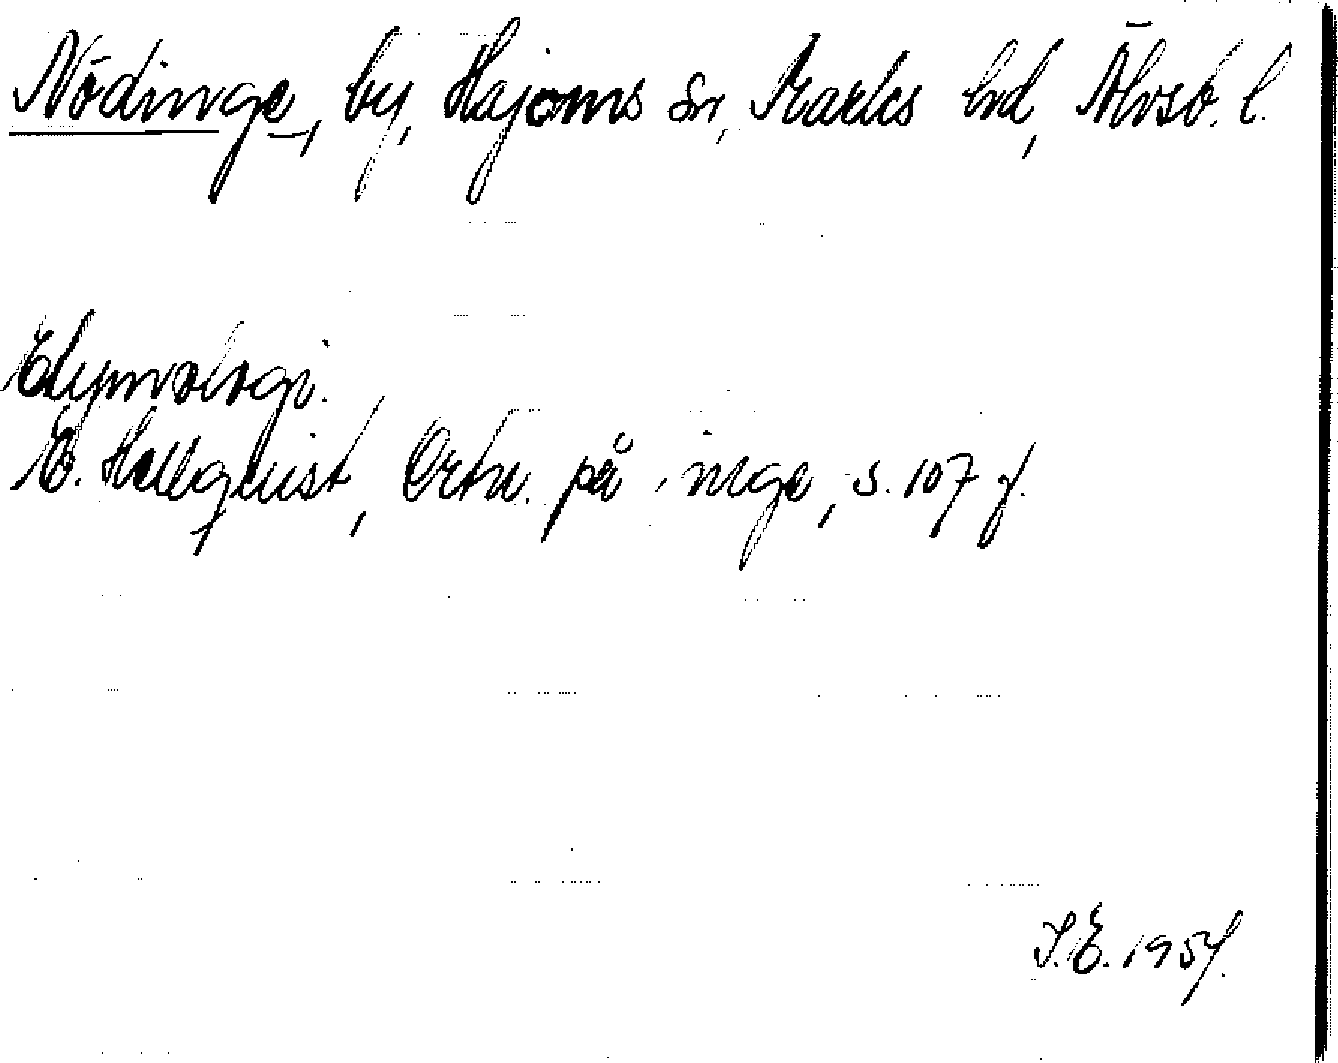 Nödinge, by, Hajoms sn, Marks hd, Älvsb. l.
Etymologi.
E. Hellquist, Ortn. på inge, s. 107 f.
S.E. 1954.